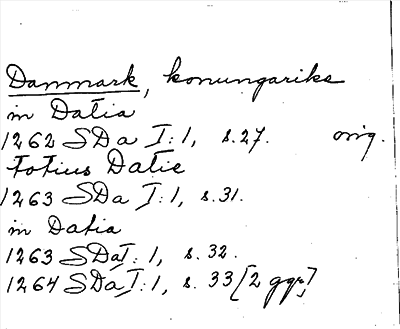 Danmark, konungarike
in Datia
1262 SDa I:1, s.27. orig.
totius Datie
1263 SDa I:1, s.31.
in Datia
1263 SDa I:1, s.32.
1264 SDa I:1, s. 33 [2 ggr]